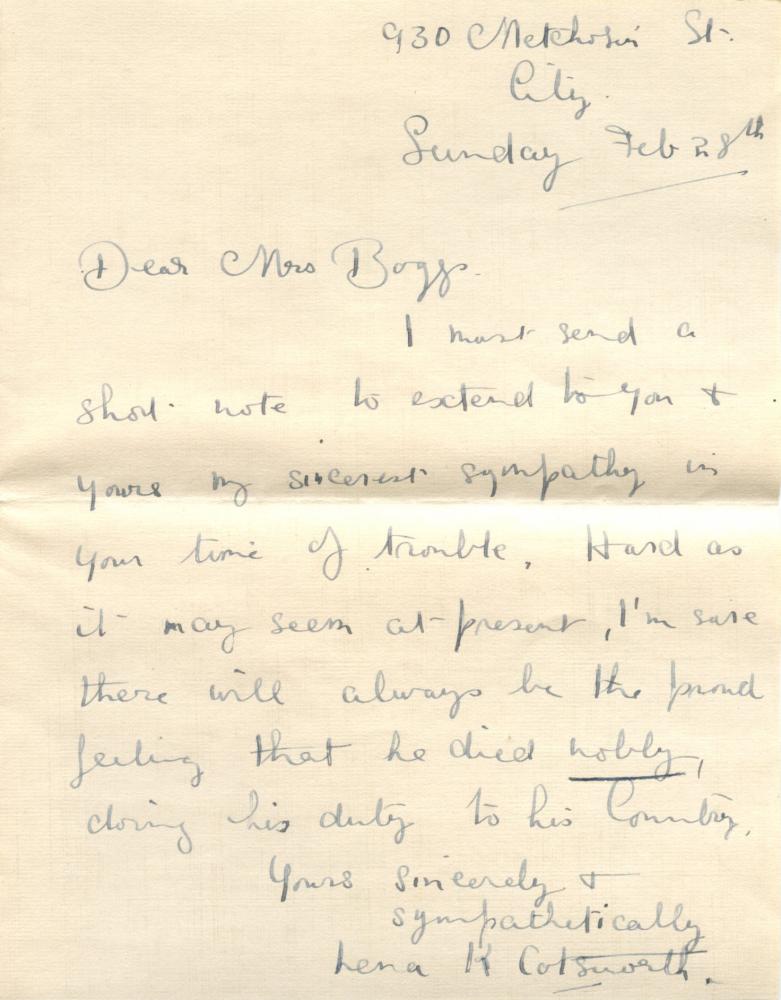 930 Metchosin St.
City.
Sunday Feb 28th
Dear Mrs Boggs.
I must send a
short note to extend to you &
yours my sincerest sympathy in
your time of trouble. Hard as
it may seem at present, I'm sure
there will always be the proud
feeling that he died nobly,
doing his duty to his Country.
Yours sincerely &
sympathetically
Lena K Cotsworth.